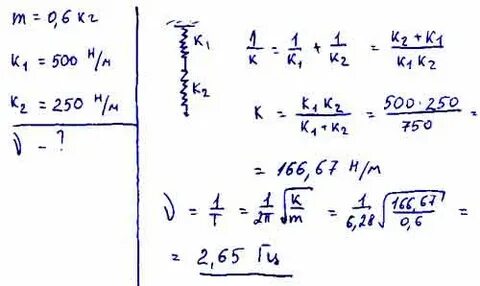 m = 0,6 кг
K₁ = 500 Н/м
K₂ = 250 Н/м
ν - ?
K₁
K₂
1/K = 1/K₁ + 1/K₂ = (K₂ + K₁)/(K₁ K₂)
K = (K₁ K₂)/(K₁ + K₂) = (500 · 250)/750 =
= 166,67 Н/м
ν = 1/T = 1/2π √(K/m) = 1/6,28 √(166,67/0,6) =
= 2,65 Гц